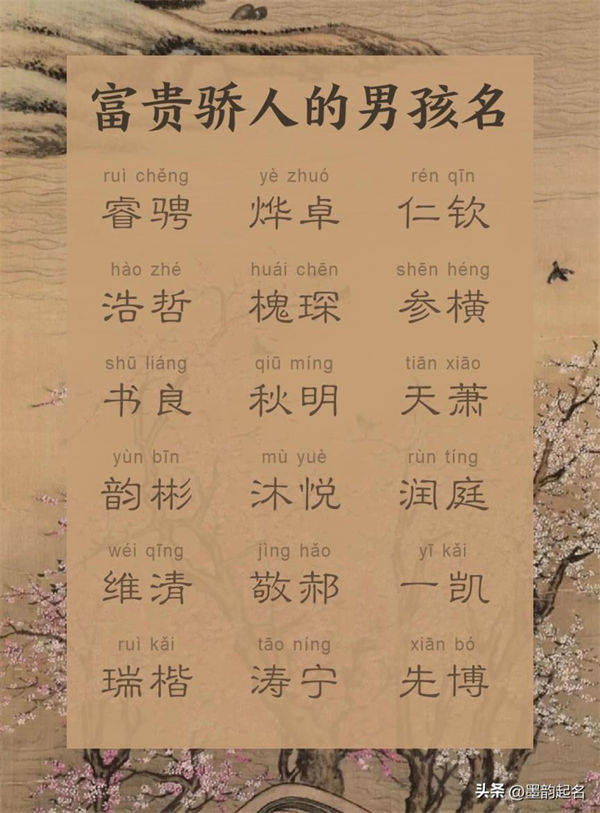 富贵骄人的男孩名
ruì chěng yè zhuó rén qīn
睿骋 烨卓 仁钦
hào zhé huái chēn shēn héng
浩哲 槐琛 参横
shū liáng qiū míng tiān xiāo
书良 秋明 天萧
yùn bīn mù yuè rùn tíng
韵彬 沐悦 润庭
wéi qīng jìng hǎo yī kǎi
维清 敬郝 一凯
ruì kǎi tāo níng xiān bó
瑞楷 涛宁 先博
头条 @墨韵起名